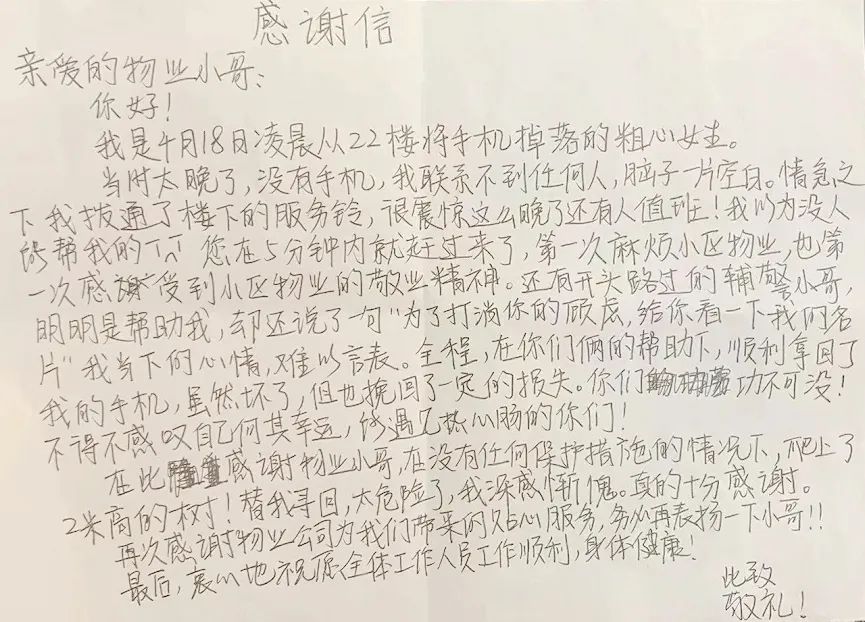 感谢信
亲爱的物业小哥：
你好！
我是4月18日凌晨从22楼将手机掉落的粗心女生。
当时太晚了，没有手机，我联系不到任何人，脑子一片空白。情急之
下我拨通了楼下的服务铃，很震惊这么晚了还有人值班！我以为没人
能帮我的TT 您在5分钟内就赶过来了，第一次麻烦小区物业，也第
一次感受到小区物业的敬业精神。还有开头路过的辅警小哥，
明明是帮助我，却还说了一句“为了打消你的顾虑，给你看一下我的名
片”我当下的心情，难以言表。全程，在你们俩的帮助下，顺利拿回了
我的手机，虽然坏了，但也挽回了一定的损失。你们功不可没！
不得不感叹自己何其幸运，能遇见热心肠的你们！
在此感谢物业小哥，在没有任何保护措施的情况下，爬上了
2米高的树！替我寻回，太危险了，我深感惭愧。真的十分感谢。
再次感谢物业公司为我们带来的贴心服务，务必再表扬一下小哥！！
最后，衷心地祝愿全体工作人员工作顺利，身体健康！
此致
敬礼！